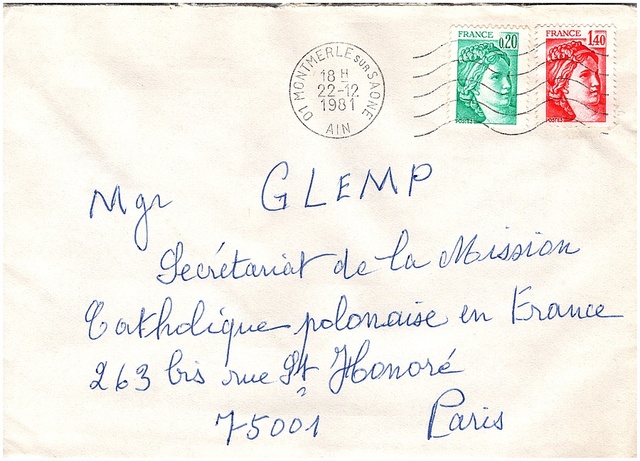 FRANCE 0,20
FRANCE 1,40
01 MONTMERLE SUR SAONE
18 H
22-12
1981
AIN
Mgr GLEMP
Secrétariat de la Mission
Catholique polonaise en France
263 bis rue St Honoré
75001 Paris